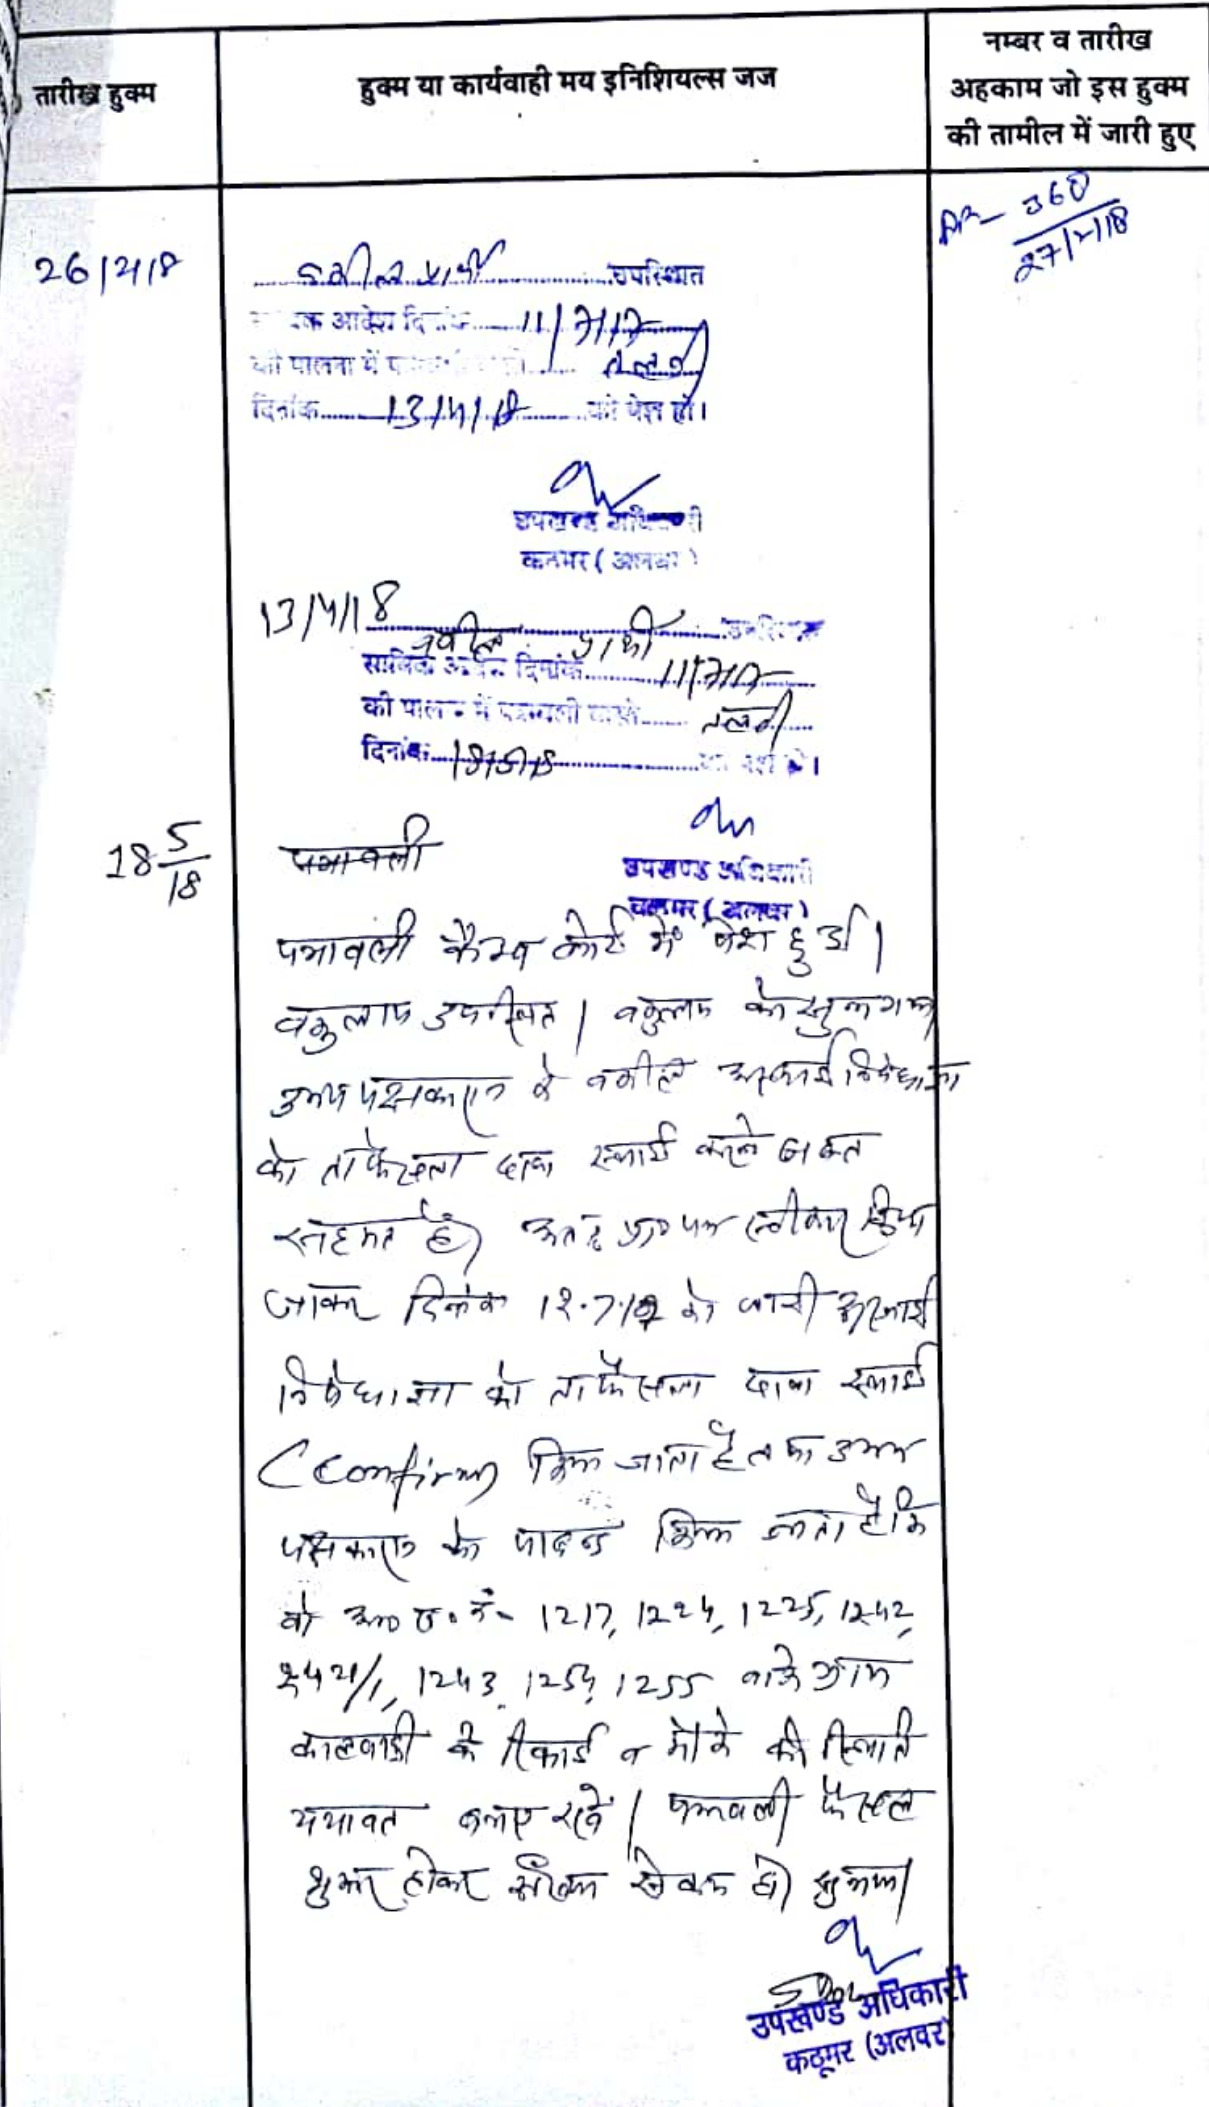 तारीख हुक्म
हुक्म या कार्यवाही मय इनिशियल्स जज
नम्बर व तारीख
अहकाम जो इस हुक्म
की तामील में जारी हुए
360
27/2/18
26/2/18
वकील प्रार्थी उपस्थित
आदेश दिनांक
की पालना में तलबी
दिनांक 13/4/18 को पेश हो।
उपखण्ड अधिकारी
कठूमर (अलवर)
13/4/18
वकील प्रार्थी उपस्थित
साबिक आदेश दिनांक
की पालना में पत्रावली वास्ते तलबी
दिनांक 18/5/18 को पेश हो।
18 5/18
पत्रावली
उपखण्ड अधिकारी
कठूमर (अलवर)
पत्रावली कैम्प कोर्ट में पेश हुई।
वकुलाय उपस्थित। वकुलाय को सुना गया
उभय पक्षकारान के वकील अस्थाई निषेधाज्ञा
को ताफैसला दावा स्थाई करने बाबत
सहमत है। अतः प्रा० पत्र स्वीकार किया
जाकर दिनांक को जारी अस्थाई
निषेधाज्ञा को ताफैसला दावा स्थाई
(Confirm) किया जाता है तथा उभय
पक्षकारान को पाबन्द किया जाता है कि
वो आ० ख० नं० 1217, 1224, 1225, 1242,
1243, 1254, 1255 वाके ग्राम
के रिकार्ड व मौके की स्थिति
यथावत बनाए रखें। पत्रावली फैसल
शुमार होकर हो।
उपखण्ड अधिकारी
कठूमर (अलवर)